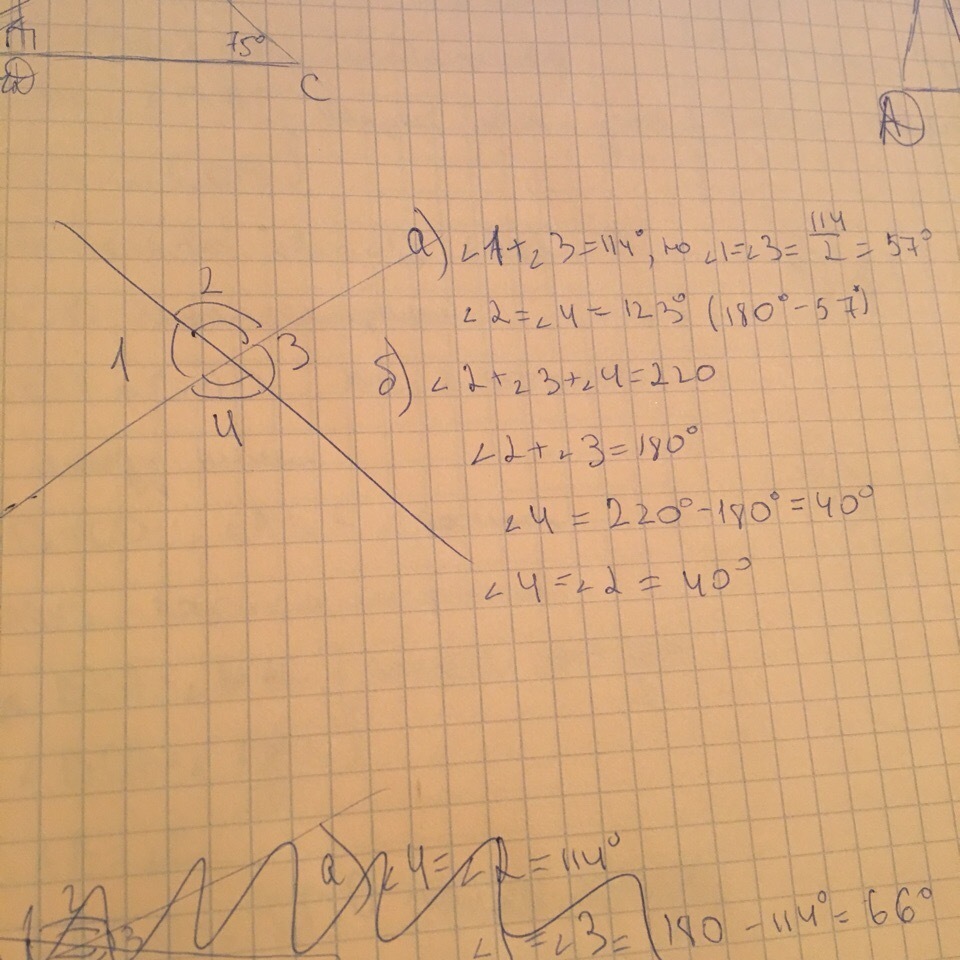 75°
C
A
а) ∠1+∠3=114°, то ∠1=∠3= 114/2 = 57°
∠2=∠4=123° (180°-57°)
2
1
3
4
б) ∠2+∠3+∠4=220
∠2+∠3=180°
∠4 = 220°-180°=40°
∠4=∠2=40°
а) ∠4=∠2=114°
2
1
3
=∠3= 180-114°=66°